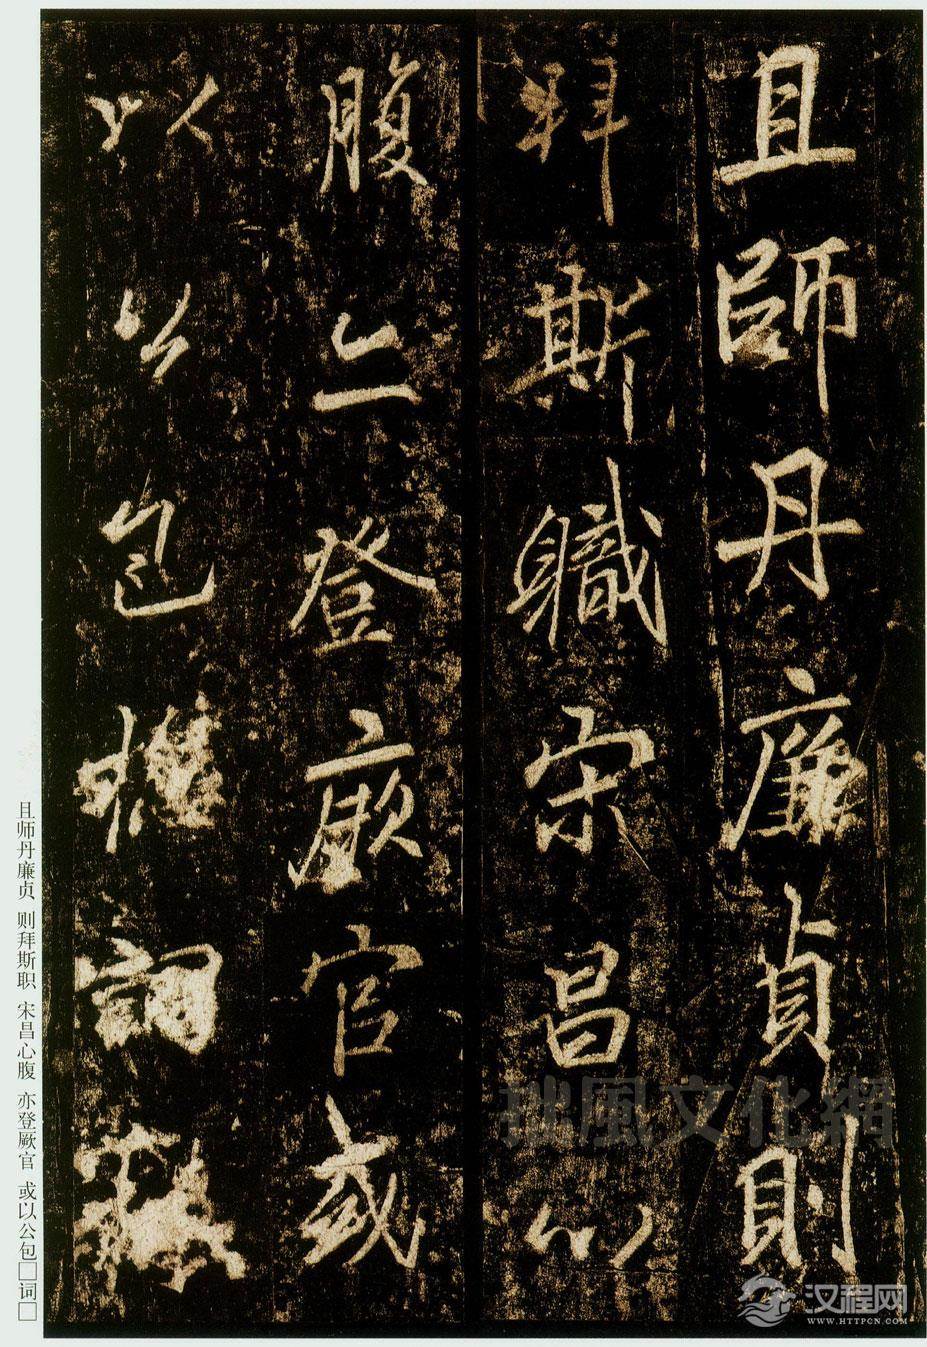 且師丹廉貞則
拜斯職宋昌心
腹亦登厥官或
以公包詞
且师丹廉贞 则拜斯职 宋昌心腹 亦登厥官 或以公包□词□
拙風文化網
汉程网
WWW.HTTPCN.COM